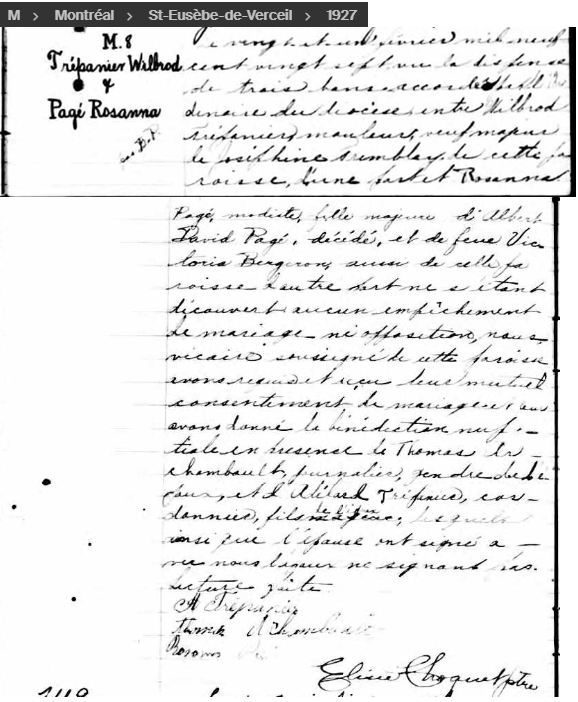 M > Montréal > St-Eusèbe-de-Verceil > 1927
M. 8
Trépanier Wilbrod
&
Pagé Rosanna
Le vingt et un février mil neuf
cent vingt sept vu la dispense
de trois bans accordée
dinaire du diocèse, entre Wilbrod
Trépanier, mouleur, veuf majeur
de Joséphine Tremblay, de cette pa
roisse, d'une part et Rosanna
Pagé, modiste, fille majeure d'Albert
David Pagé, décédé, et de feue Vic
toria Bergeron, aussi de cette pa
roisse d'autre part ne s'étant
découvert aucun empêchement
de mariage ni opposition, nous
vicaire soussigné de cette paroisse
avons requis et reçu leur mutuel
consentement de mariage et leur
avons donné la bénédiction nup-
tiale en présence de Thomas Ar-
chambault, journalier, gendre
et d' Trépanier, cor-
donnier, fils lesquels
ainsi que l'épouse ont signé a-
vec nous ne signant pas.
Lecture faite
A Trépanier
Thomas Archambault
Rosanna
Choquet ptre